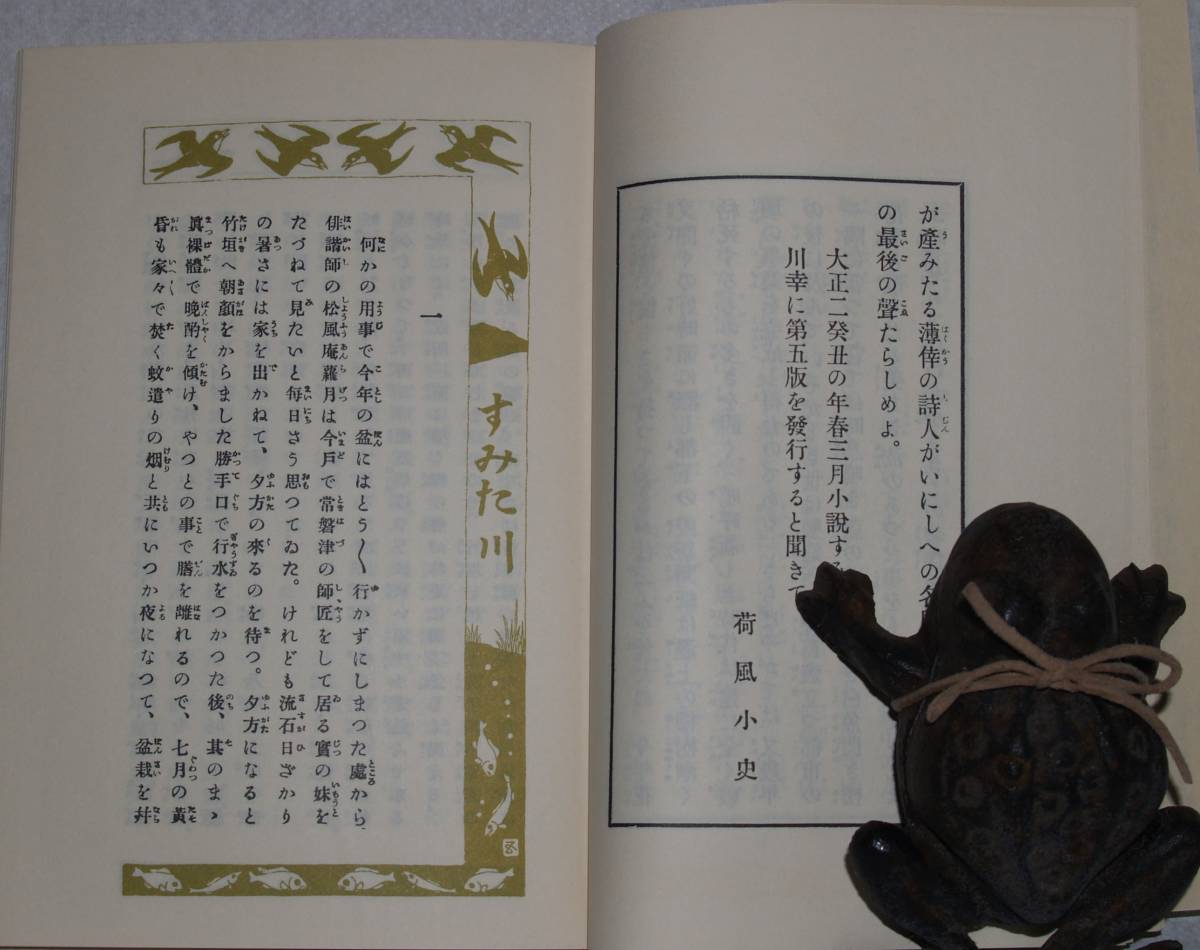 が產みたる薄倖の詩人がいにしへの名
の最後の聲たらしめよ。
大正二癸丑の年春三月小說すみ
川幸に第五版を發行すると聞きて
荷風小史
すみた川
一
何かの用事で今年の盆にはとう〱行かずにしまつた處から、
俳諧師の松風庵蘿月は今戶で常磐津の師匠をして居る實の妹を
たづねて見たいと每日さう思つてゐた。けれども流石日ざかり
の暑さには家を出かねて、夕方の來るのを待つ。夕方になると
竹垣へ朝顏をからました勝手口で行水をつかつた後、其のまゝ
眞裸體で晩酌を傾け、やつとの事で膳を離れるので、七月の黃
昏も家々で焚く蚊遣りの烟と共にいつか夜になつて、盆栽を幷